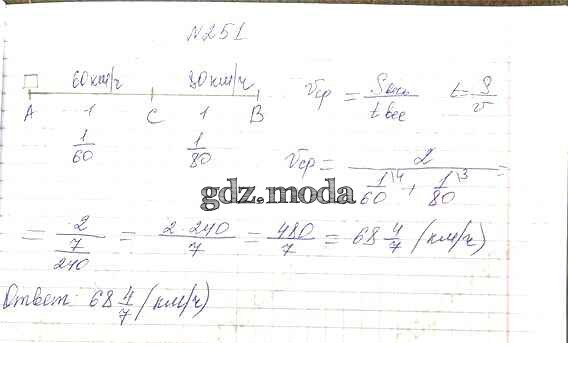 N251
60км/ч 80км/ч
A 1 C 1 B
1/60 1/80
Vср = Sвсе / tвсе t = S/v
Vср = 2 / (1/60\4 + 1/80\3) =
gdz.moda
= 2 / (7/240) = 2·240 / 7 = 480/7 = 68 4/7 (км/ч)
Ответ: 68 4/7 (км/ч)